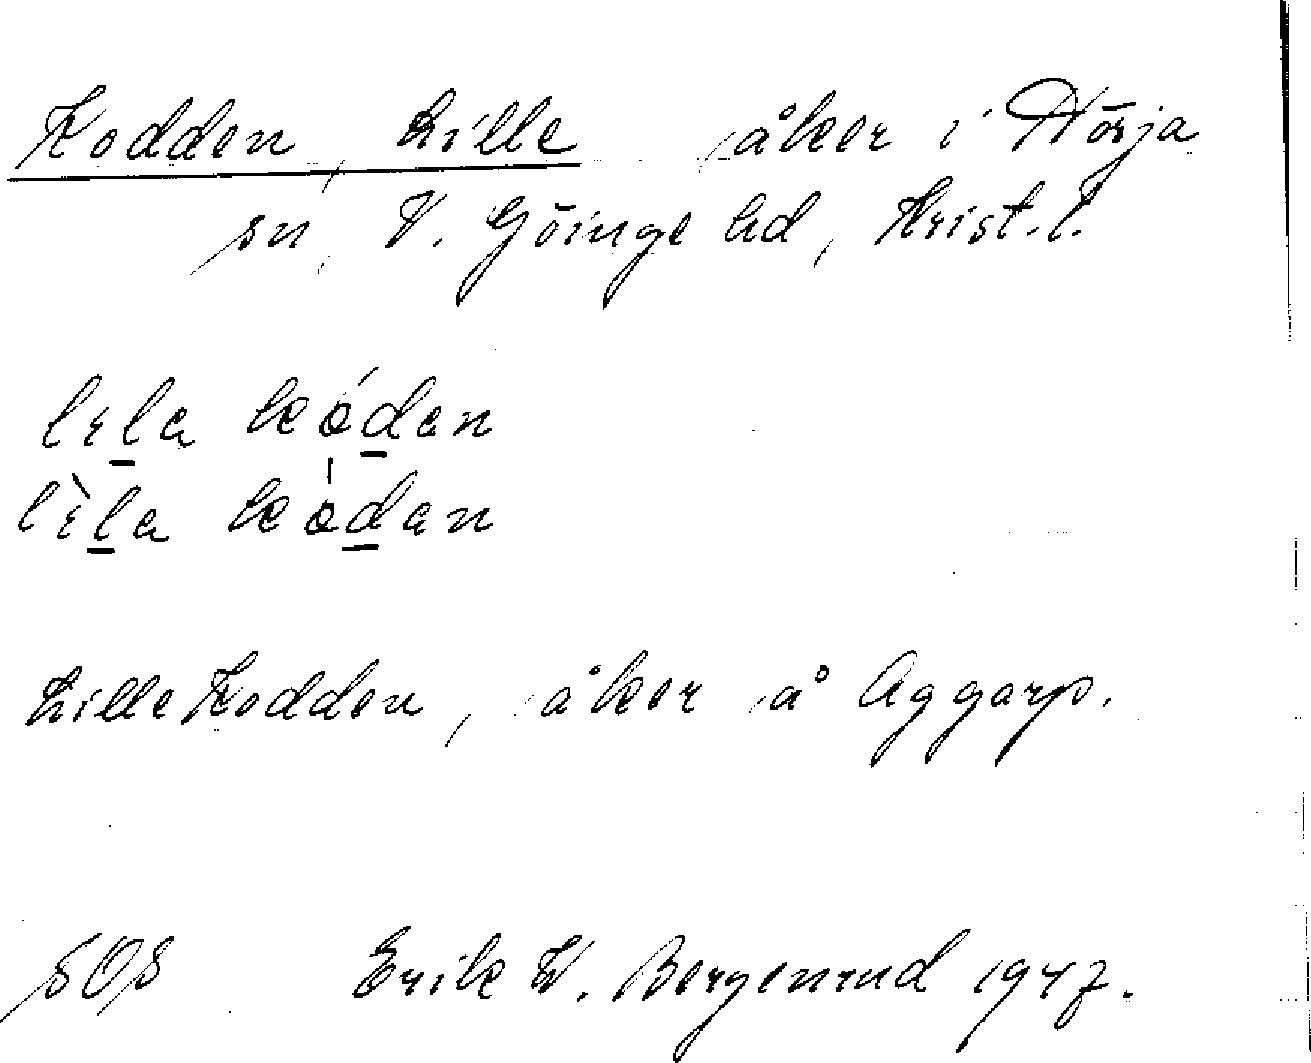 Kodden, Lille åker i Nörja
sn, V. Göinge hd, Krist. l.
lɛla kódan
lɛ̀la kódan
Lille Kodden, åker å Aggarp.
SOS Erik W. Bergenrud 1947.